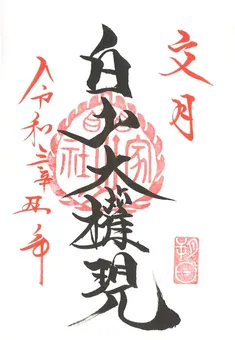 文月
白山大權現
令和三辛丑年
朔日